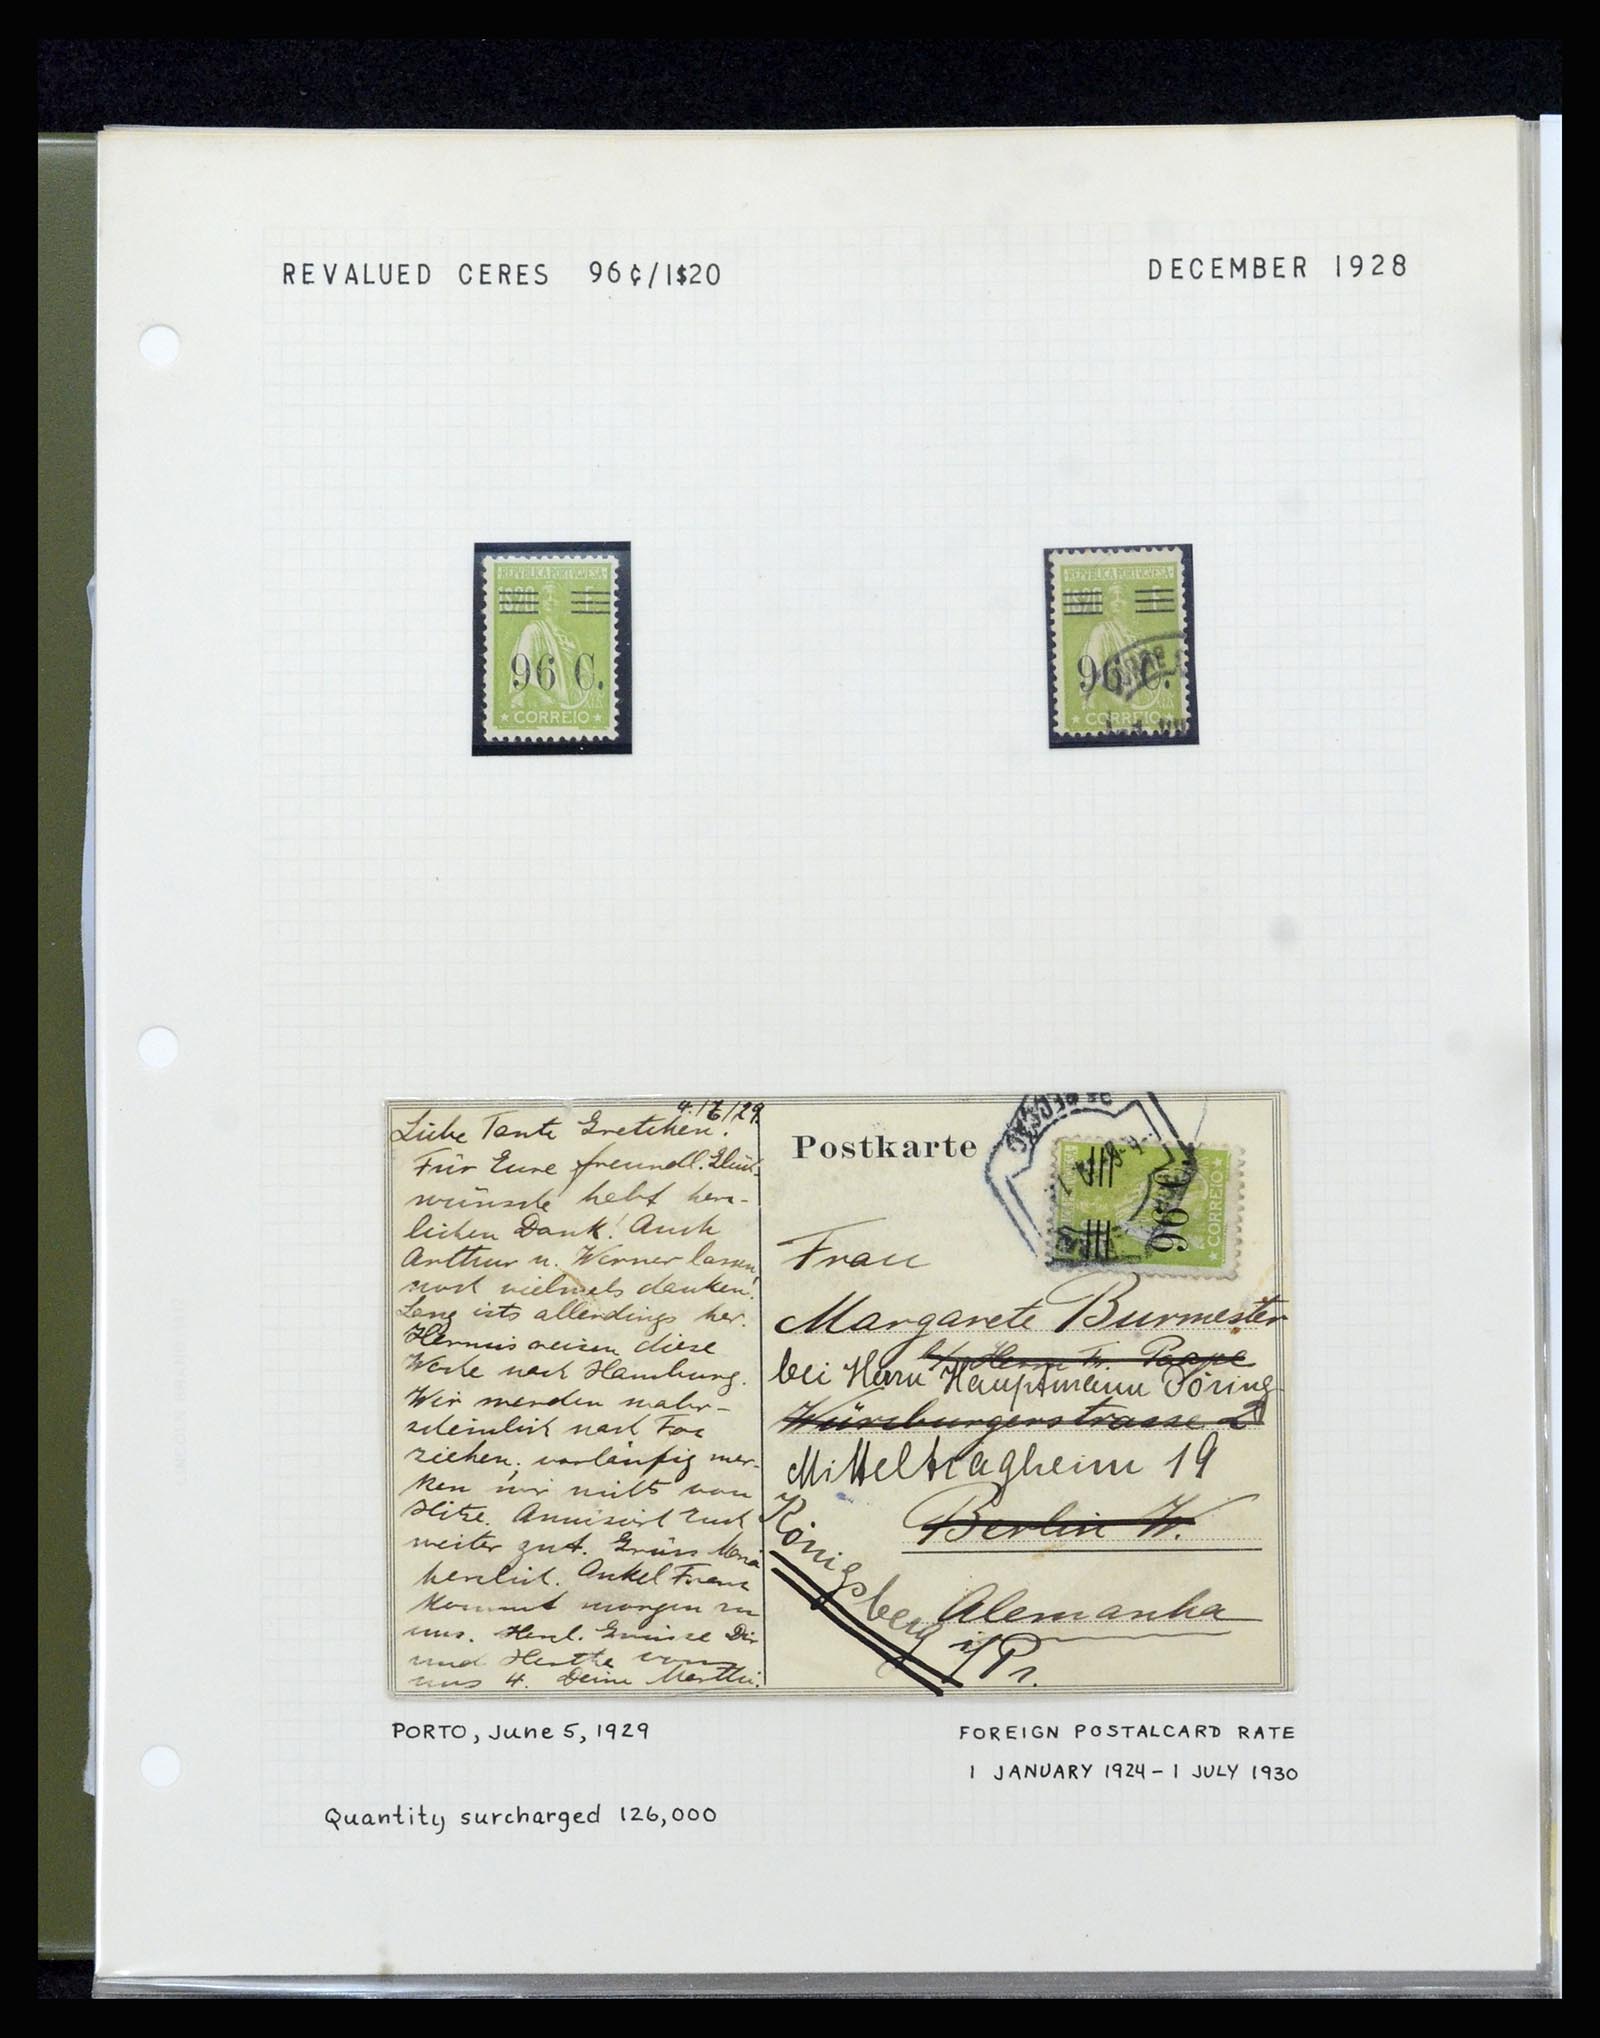 REVALUED CERES 96¢/1$20
DECEMBER 1928
REPVBLICA PORTVGVESA
1$20
96 C.
★ CORREIO ★
REPVBLICA PORTVGVESA
1$20
96 C.
★ CORREIO ★
4./6/29.
Liebe Tante Gretchen!
Für Eure freundl. Glück-
wünsche habt herz-
lichen Dank! Auch
Arthur u. Werner lassen
noch vielmals danken!
Lang ists allerdings her.
reisen diese
Woche nach Hamburg.
Wir werden wahr-
scheinlich nach Foz
ziehen, vorläufig mer-
ken wir nichts von
Hitze. Amüsiert Euch
weiter gut. Grüss Maria
herzlich. Onkel Franz
kommt morgen zu
uns. Herzl. Grüsse Dir
und Herthe von
uns 4. Deine
Postkarte
96 C.
★ CORREIO ★
Frau
Margarete Burmester
b/ Herrn Fr. Paape
bei Herrn Hauptmann Döring
Würzburgerstrasse 2
Mitteltragheim 19
Berlin W.
Königsberg i/Pr.
Alemanha
PORTO, June 5, 1929
FOREIGN POSTALCARD RATE
1 JANUARY 1924 – 1 JULY 1930
Quantity surcharged 126,000